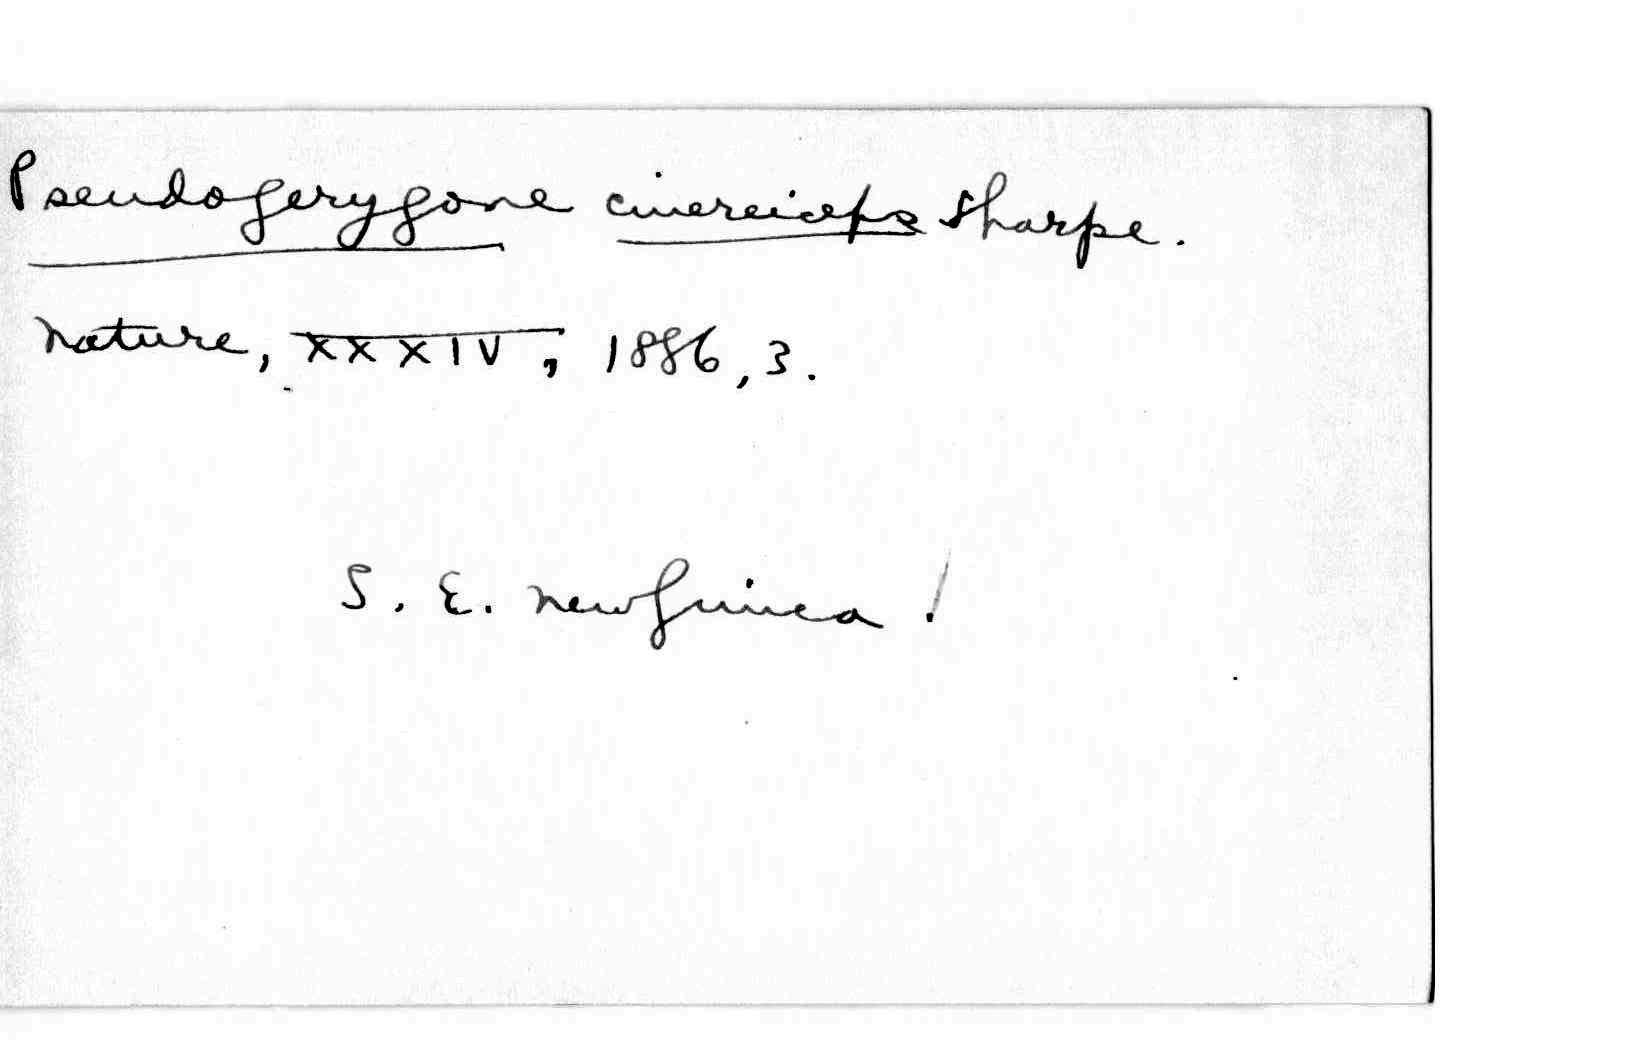 Pseudogerygone cinereiceps Sharpe.
Nature, XXXIV, 1886, 3.
S. E. New Guinea !